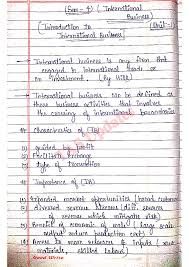 (Sem - 4) (International
Business)
(Introduction to
International Business)
(Unit-1)
→ International business is any firm that
engaged in International trade or
an investment. (By Hills)
→ International business can be defined as
those business activities that involves
the crossing of international boundaries
Characteristics of IB)
guided by profit
Facilitate Exchange
type of transaction
Importance of (IB)
Expanded market opportunities (broad customer
Diversed revenue streams (diff. sources
of revenue which mitigate risk)
Benefit of economies of scale (large scale
reduce production cost)
Access to more resources & inputs (raw
materials, skilled labour)